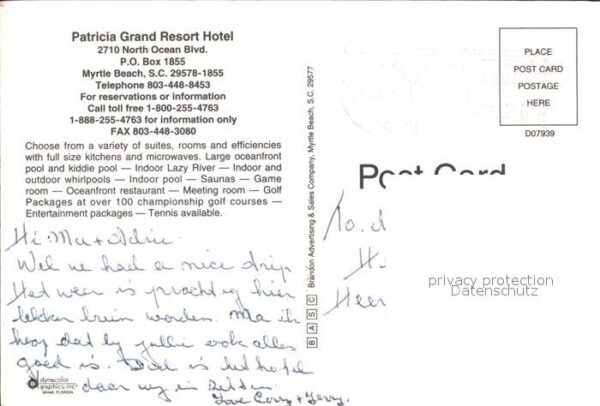 Patricia Grand Resort Hotel
2710 North Ocean Blvd.
P.O. Box 1855
Myrtle Beach, S.C. 29578-1855
Telephone 803-448-8453
For reservations or information
Call toll free 1-800-255-4763
1-888-255-4763 for information only
FAX 803-448-3080
Choose from a variety of suites, rooms and efficiencies
with full size kitchens and microwaves. Large oceanfront
pool and kiddie pool — Indoor Lazy River — Indoor and
outdoor whirlpools — Indoor pool — Saunas — Game
room — Oceanfront restaurant — Meeting room — Golf
Packages at over 100 championship golf courses —
Entertainment packages — Tennis available.
Hi Ma +
Wel we had a nice trip
Het weer is prachtig hier
lekker bruin worden. Ma ik
hoop dat by jullie ook alles
goed is. Dit is het hotel
daar wy in zitten.
Love Corry + Gerry.
dynacolor
graphics, inc.
MIAMI, FLORIDA
Brandon Advertising & Sales Company, Myrtle Beach, S.C. 29577
BASC
PLACE
POST CARD
POSTAGE
HERE
D07939
Post Card
To.
Heer
privacy protection
Datenschutz